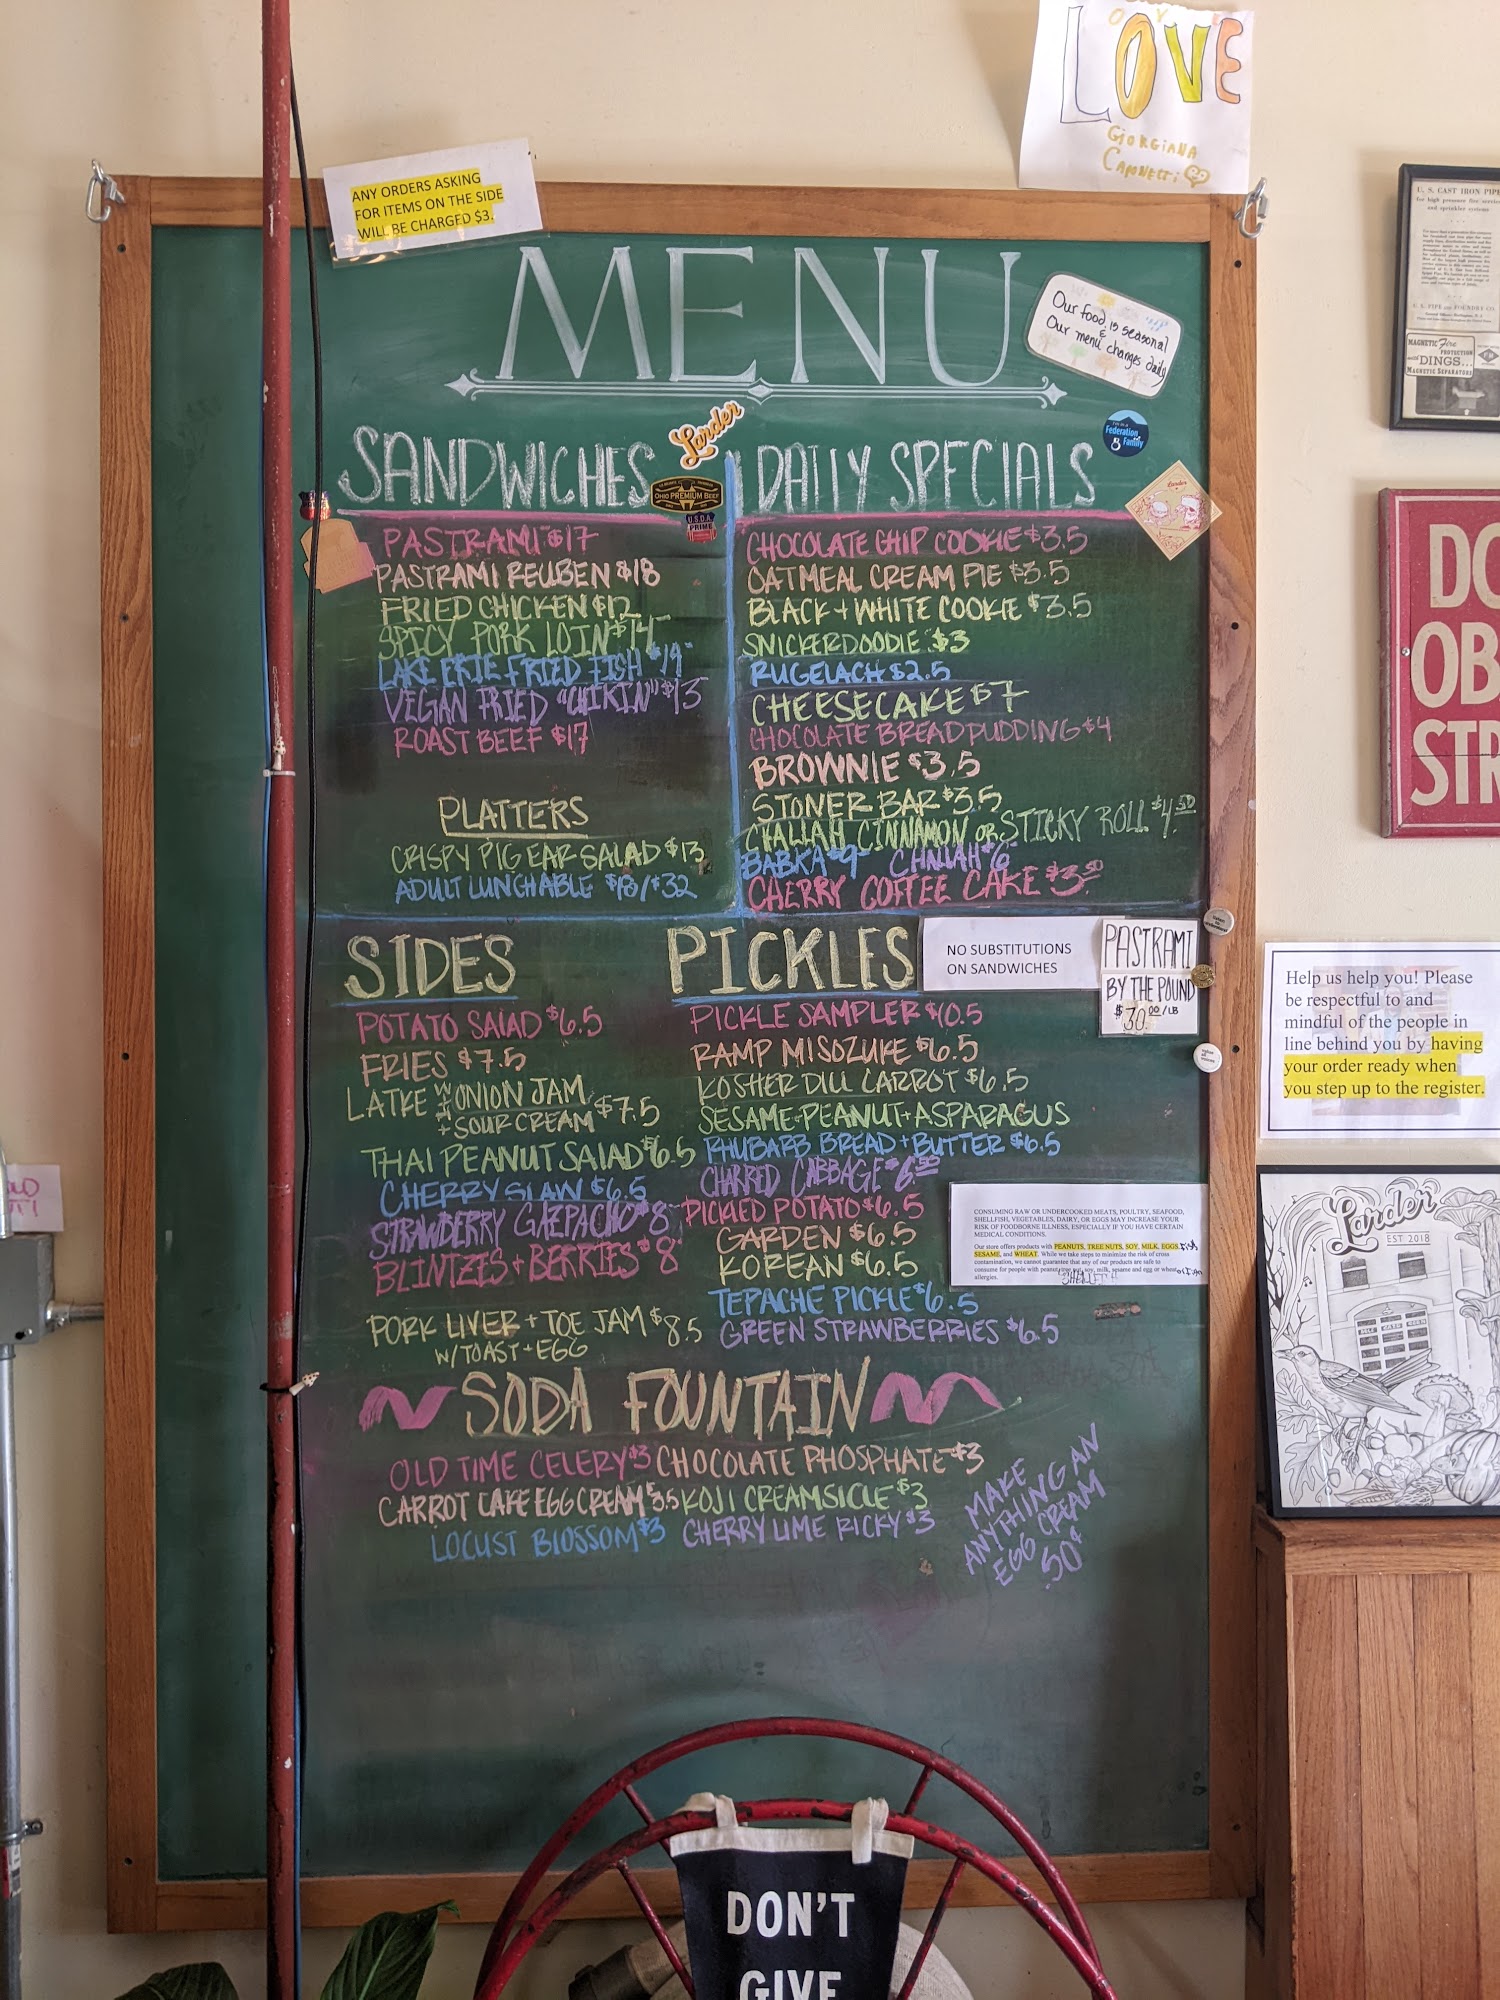 LOVE
GIORGIANA
CAPONETTI
ANY ORDERS ASKING
FOR ITEMS ON THE SIDE
WILL BE CHARGED $3.
MENU
Our food is seasonal
&
Our menu changes daily
Larder
Federation
Family
OHIO PREMIUM BEEF
U.S.D.A.
PRIME
SANDWICHES
PASTRAMI $17
PASTRAMI REUBEN $18
FRIED CHICKEN $12
SPICY PORK LOIN $14
LAKE ERIE FRIED FISH $14
VEGAN FRIED "CHIKIN" $13
ROAST BEEF $17
PLATTERS
CRISPY PIG EAR SALAD $13
ADULT LUNCHABLE $18/$32
DAILY SPECIALS
CHOCOLATE CHIP COOKIE $3.5
OATMEAL CREAM PIE $3.5
BLACK + WHITE COOKIE $3.5
SNICKERDOODLE $3
RUGELACH $2.5
CHEESECAKE $7
CHOCOLATE BREAD PUDDING $4
BROWNIE $3.5
STONER BAR $3.5
CHALLAH CINNAMON OR STICKY ROLL $4.50
BABKA $9 CHALLAH $6
CHERRY COFFEE CAKE $3.50
SIDES
POTATO SALAD $6.5
FRIES $7.5
LATKE WITH ONION JAM
+ SOUR CREAM $7.5
THAI PEANUT SALAD $6.5
CHERRY SLAW $6.5
STRAWBERRY GAZPACHO $8
BLINTZES + BERRIES $8
PORK LIVER + TOE JAM $8.5
W/TOAST + EGG
PICKLES
PICKLE SAMPLER $10.5
RAMP MISOZUKE $6.5
KOSHER DILL CARROT $6.5
SESAME-PEANUT + ASPARAGUS
RHUBARB BREAD + BUTTER $6.5
CHARRED CABBAGE $6.50
PICKLED POTATO $6.5
GARDEN $6.5
KOREAN $6.5
TEPACHE PICKLE $6.5
GREEN STRAWBERRIES $6.5
NO SUBSTITUTIONS
ON SANDWICHES
PASTRAMI
BY THE POUND
$30.00/LB
CONSUMING RAW OR UNDERCOOKED MEATS, POULTRY, SEAFOOD,
SHELLFISH, VEGETABLES, DAIRY, OR EGGS MAY INCREASE YOUR
RISK OF FOODBORNE ILLNESS, ESPECIALLY IF YOU HAVE CERTAIN
MEDICAL CONDITIONS.
Our store offers products with PEANUTS, TREE NUTS, SOY, MILK, EGGS, Fish
SESAME, and WHEAT. While we take steps to minimize the risk of cross
contamination, we cannot guarantee that any of our products are safe to
consume for people with peanut, tree nut, soy, milk, sesame and egg or wheat
allergies.
SODA FOUNTAIN
OLD TIME CELERY $3 CHOCOLATE PHOSPHATE $3
CARROT CAKE EGG CREAM $3.5 KOJI CREAMSICLE $3
LOCUST BLOSSOM $3 CHERRY LIME RICKY $3
MAKE
ANYTHING AN
EGG CREAM
.50¢
U. S. CAST IRON PIPE
for high pressure fire service
and sprinkler systems
MAGNETIC Fire
PROTECTION
with DINGS...
MAGNETIC SEPARATORS
DO
OB
STR
Help us help you! Please
be respectful to and
mindful of the people in
line behind you by having
your order ready when
you step up to the register.
Larder
EST 2018
DON'T
GIVE